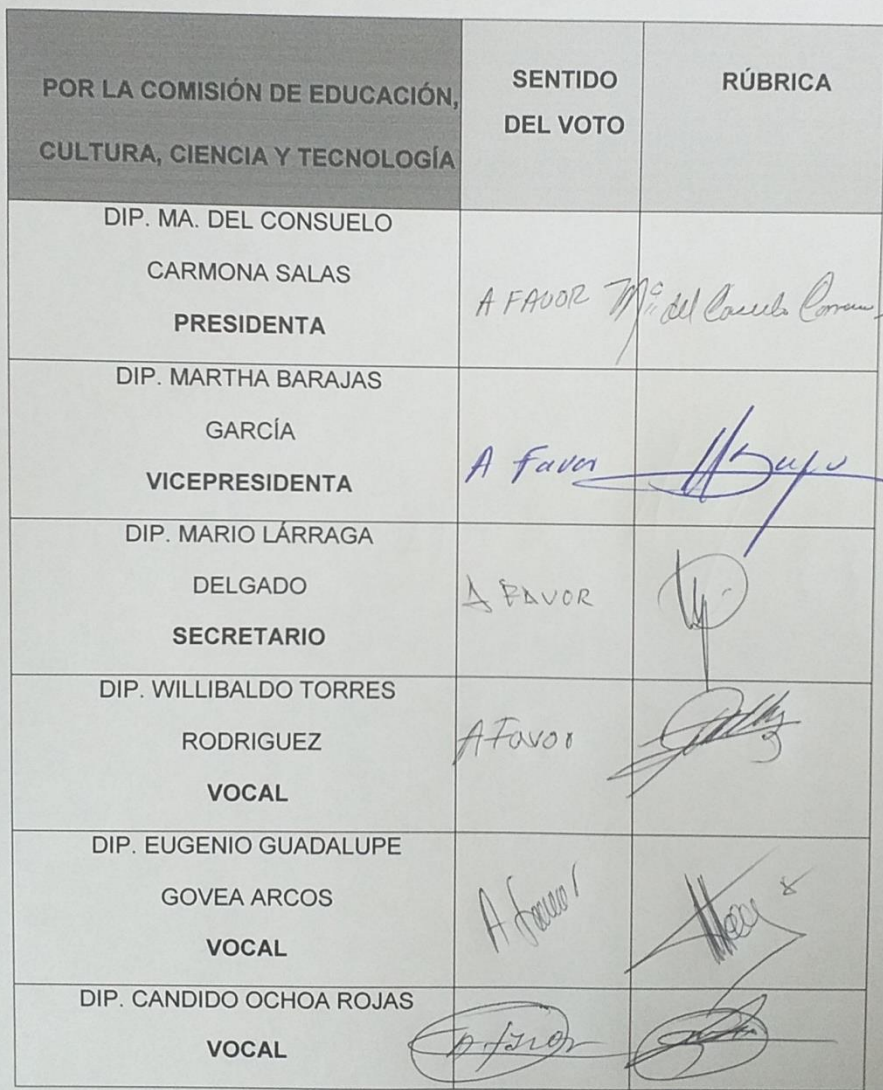 POR LA COMISIÓN DE EDUCACIÓN,
CULTURA, CIENCIA Y TECNOLOGÍA
SENTIDO
DEL VOTO
RÚBRICA
DIP. MA. DEL CONSUELO
CARMONA SALAS
PRESIDENTA
A FAVOR
Mª del Consuelo
DIP. MARTHA BARAJAS
GARCÍA
VICEPRESIDENTA
A Favor
DIP. MARIO LÁRRAGA
DELGADO
SECRETARIO
A FAVOR
DIP. WILLIBALDO TORRES
RODRIGUEZ
VOCAL
A Favor
DIP. EUGENIO GUADALUPE
GOVEA ARCOS
VOCAL
A favor
DIP. CANDIDO OCHOA ROJAS
VOCAL
A favor